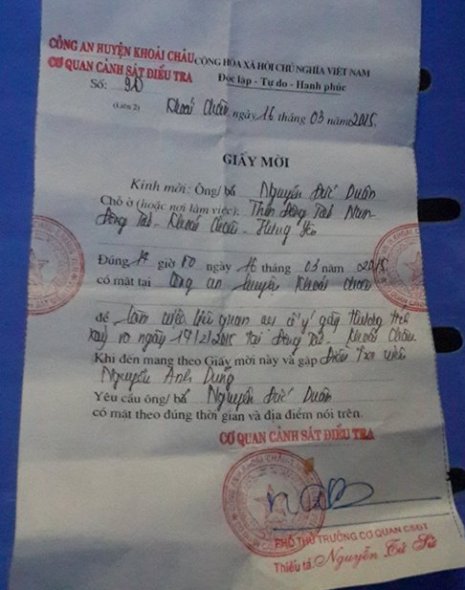 CÔNG AN HUYỆN KHOÁI CHÂU CỘNG HÒA XÃ HỘI CHỦ NGHĨA VIỆT NAM
CƠ QUAN CẢNH SÁT ĐIỀU TRA Độc lập - Tự do - Hạnh phúc
Số: 90
(Liên 2) Khoái Châu ngày 16 tháng 03 năm 2015
GIẤY MỜI
Kính mời: Ông/bà Nguyễn Đức Duân
Chỗ ở (hoặc nơi làm việc): Thôn Đông Tảo Nam
Đông Tảo - Khoái Châu - Hưng Yên
Đúng giờ ngày 16 tháng 03 năm 2015
có mặt tại Công an huyện Khoái Châu
để làm việc liên quan cố ý gây thương tích
xảy ra ngày 19/2/2015 tại Đông Tảo - Khoái Châu
Khi đến mang theo Giấy mời này và gặp Điều tra viên
Nguyễn Anh Dũng
Yêu cầu ông/bà Nguyễn Đức Duân
có mặt theo đúng thời gian và địa điểm nói trên.
CƠ QUAN CẢNH SÁT ĐIỀU TRA
PHÓ THỦ TRƯỞNG CƠ QUAN CSĐT
Thiếu tá: Nguyễn